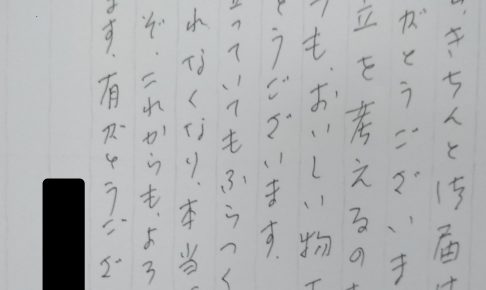 、きちんと御届け
がとうございま
立を考えるの
も、おいしい物
とうございます。
っていてもふらつく
れなくなり、本当
ぞ、これからも、よろ
ます。有がとうござ